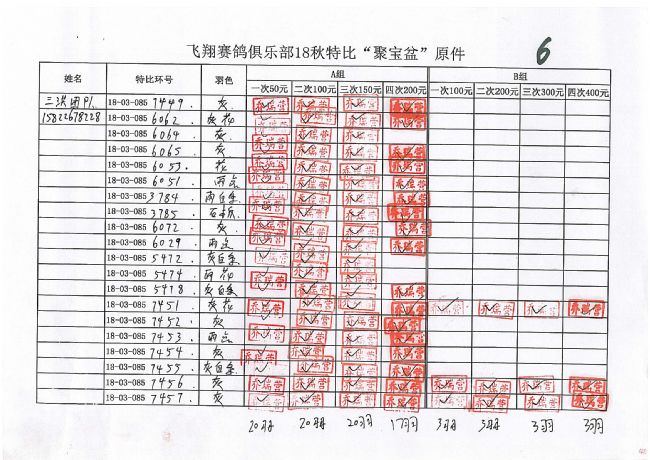 飞翔赛鸽俱乐部18秋特比“聚宝盆”原件 6
姓名 特比环号 羽色 A组 B组
一次50元 二次100元 三次150元 四次200元 一次100元 二次200元 三次300元 四次400元
18-03-085 7449. 灰
15822678228 18-03-085 6062 灰花
18-03-085 6064 灰
18-03-085 6065 灰
18-03-085 6053. 花
18-03-085 6051 雨点
18-03-085 3784
18-03-085 3785
18-03-085 6072 灰
18-03-085 6029 雨点
18-03-085 5472
18-03-085 5474 雨花
18-03-085 5478
18-03-085 7451 灰花
18-03-085 7452 灰
18-03-085 7453 雨点
18-03-085 7454 灰
18-03-085 7455
18-03-085 7456 灰
18-03-085 7457 灰
20羽 20羽 20羽 17羽 3羽 3羽 3羽 3羽